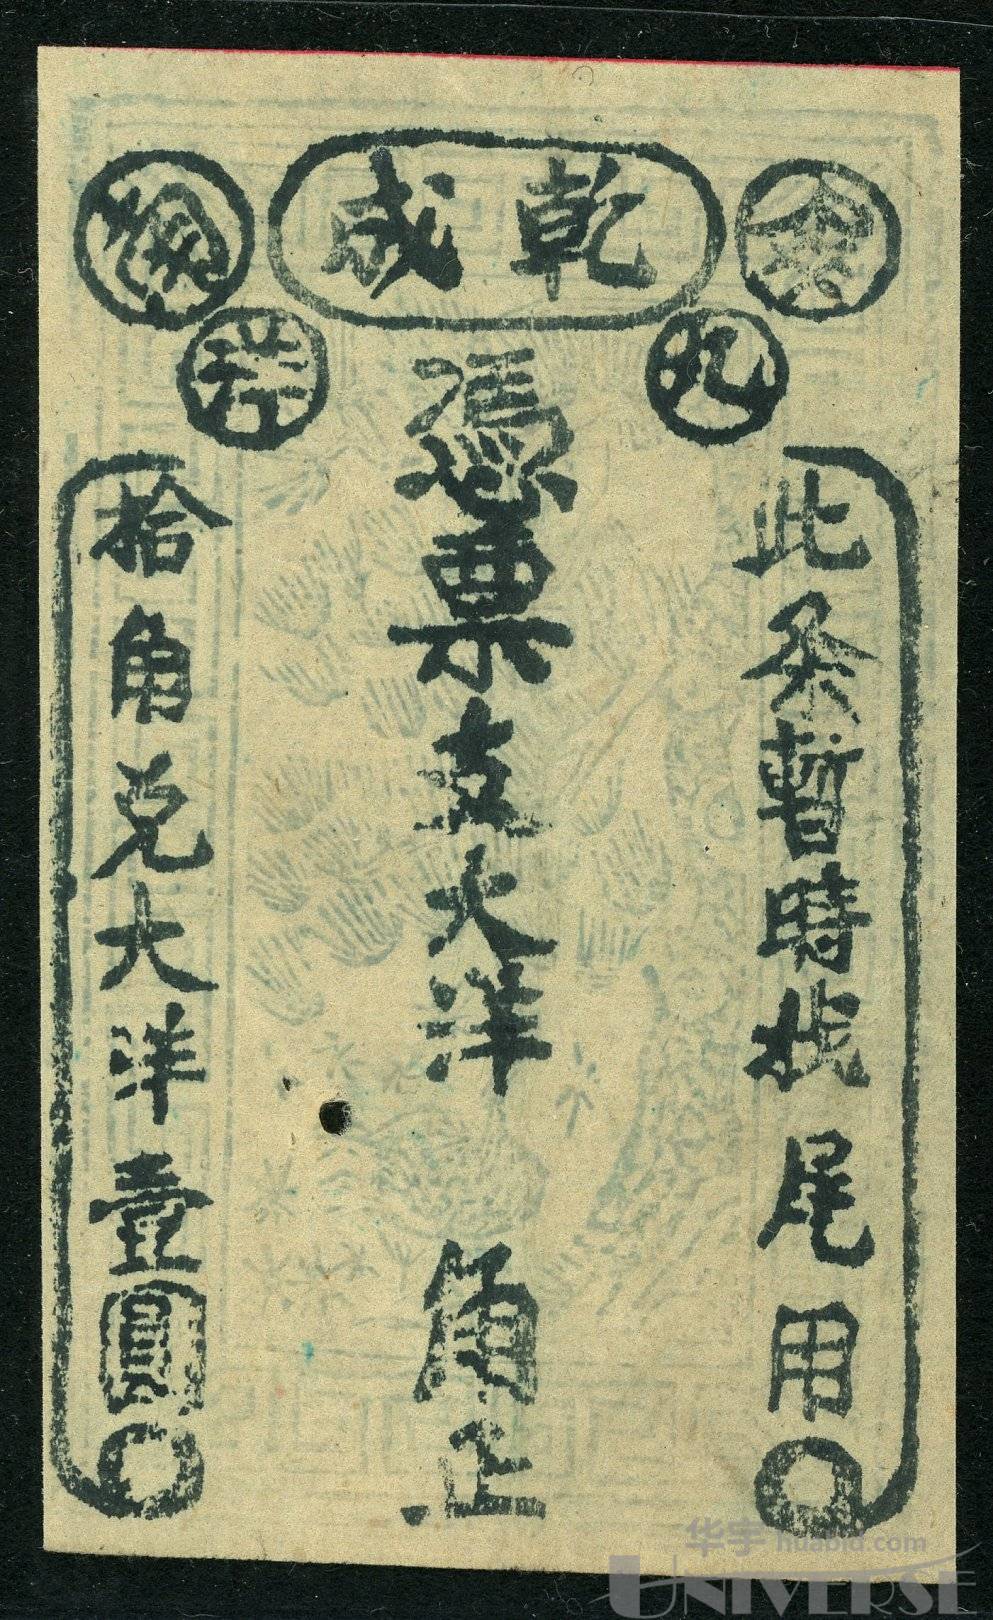 乾咸
余
九
洋
此条暂時找尾用
憑票支大洋 角正
拾角兑大洋壹圓
华宇 huabid.com
UNIVERSE